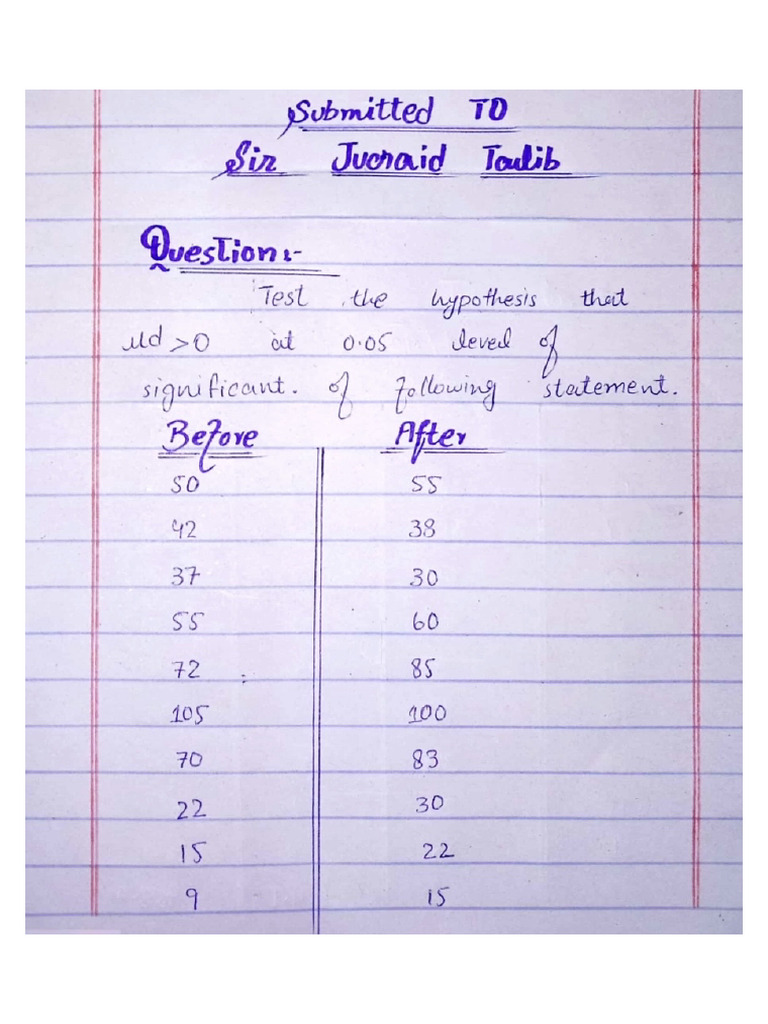 Submitted TO
Sir Junaid Talib
Question:-
Test the hypothesis that
μd > 0 at 0.05 level of
significant. of following statement.
Before After
50 55
42 38
37 30
55 60
72 85
105 100
70 83
22 30
15 22
9 15